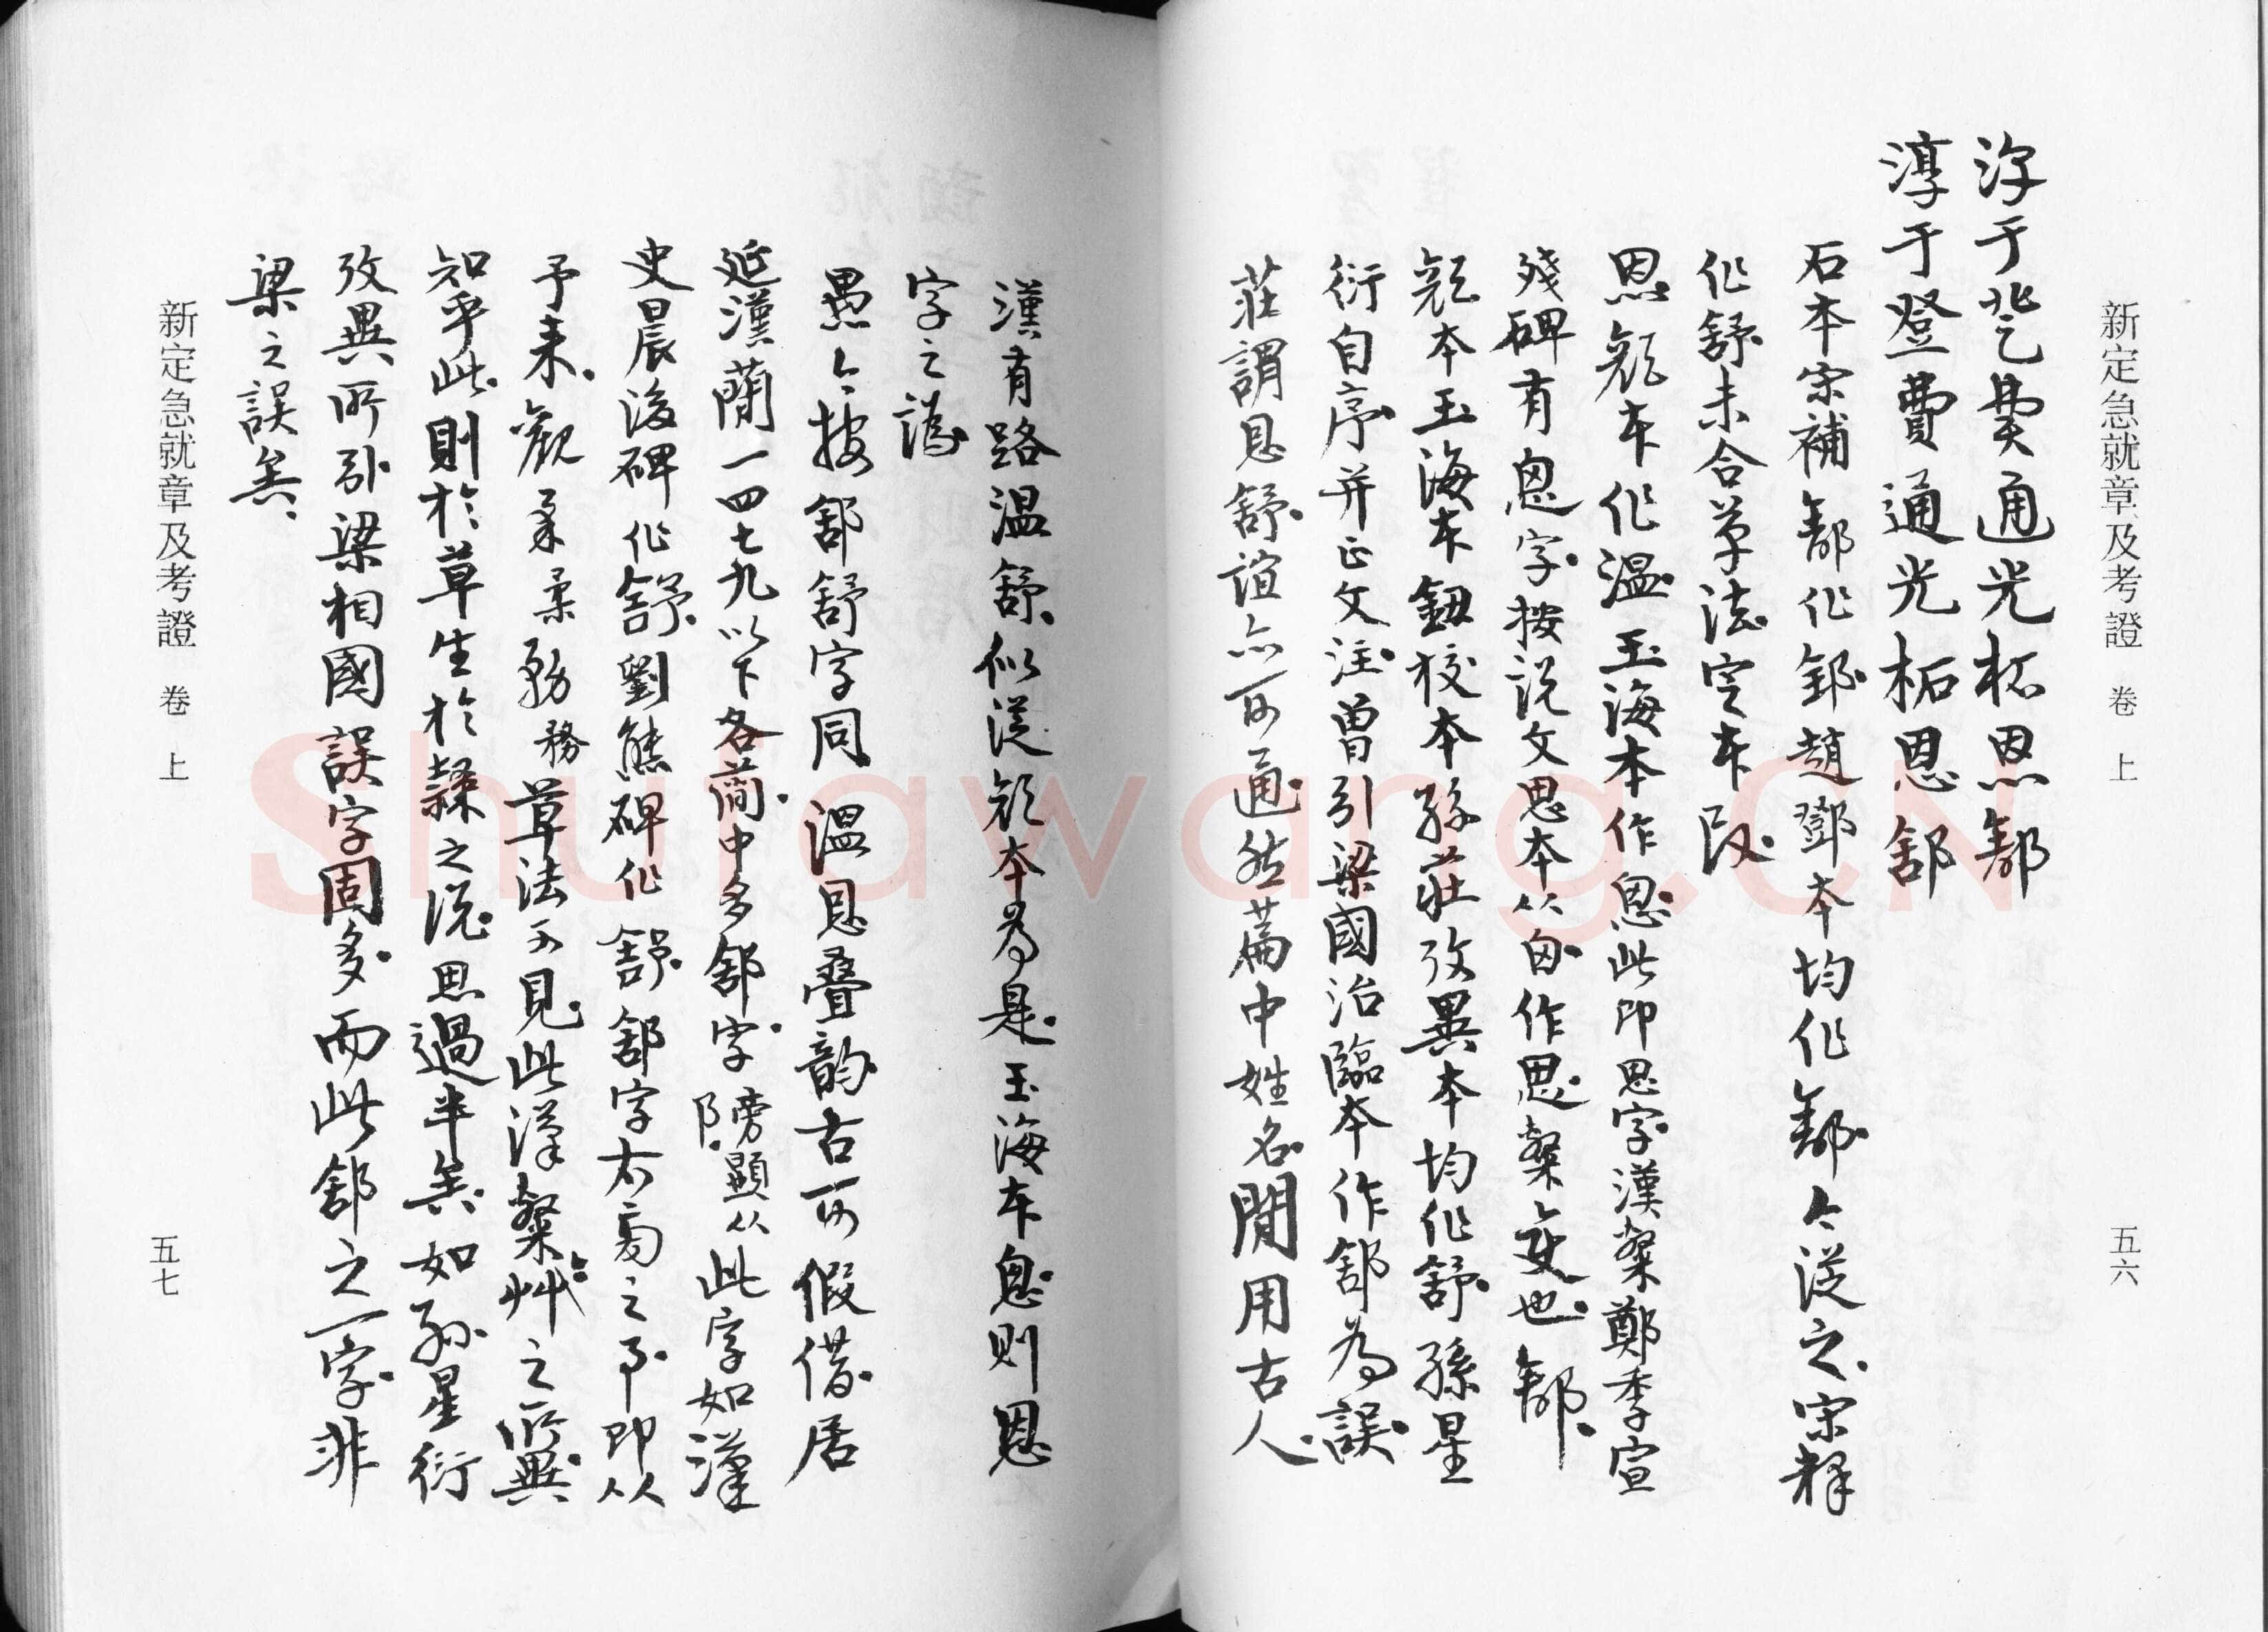 新定急就章及考證 卷上
五六
淳于登費通光柘恩舒
淳于登費通光柘恩舒
石本宋補鄀作鄀趙鄧本均作鄀今從之宋釋
作舒未合草法空本段
恩顏本作溫玉海本作恩此即恩字漢鄭季宣
殘碑有恩字按說文恩本从因作恩變也鄀
顏本玉海本鈕校本孫莊攷異本均作舒孫星
衍自序并正文注曾引梁國治臨本作舒為誤
莊謂恩舒誼亦可通然篇中姓名閒用古人
漢有路溫舒似從顏本為是玉海本恩則恩
字之譌
愚今按舒舒字同溫恩疊韵古可假借居
延漢蕳一四七九以下各蕳中多舒字旁顯从阝此字如漢
史晨後碑作舒劉熊碑作舒舒字右旁之予即从
予來觀柔柔務務草法可見此漢草之所異
知乎此則於草生於隸之說思過半矣如孫星衍
攷異所引梁相國誤字固多而此舒之一字非
梁之誤矣
新定急就章及考證 卷上
五七
Shufawang.CN